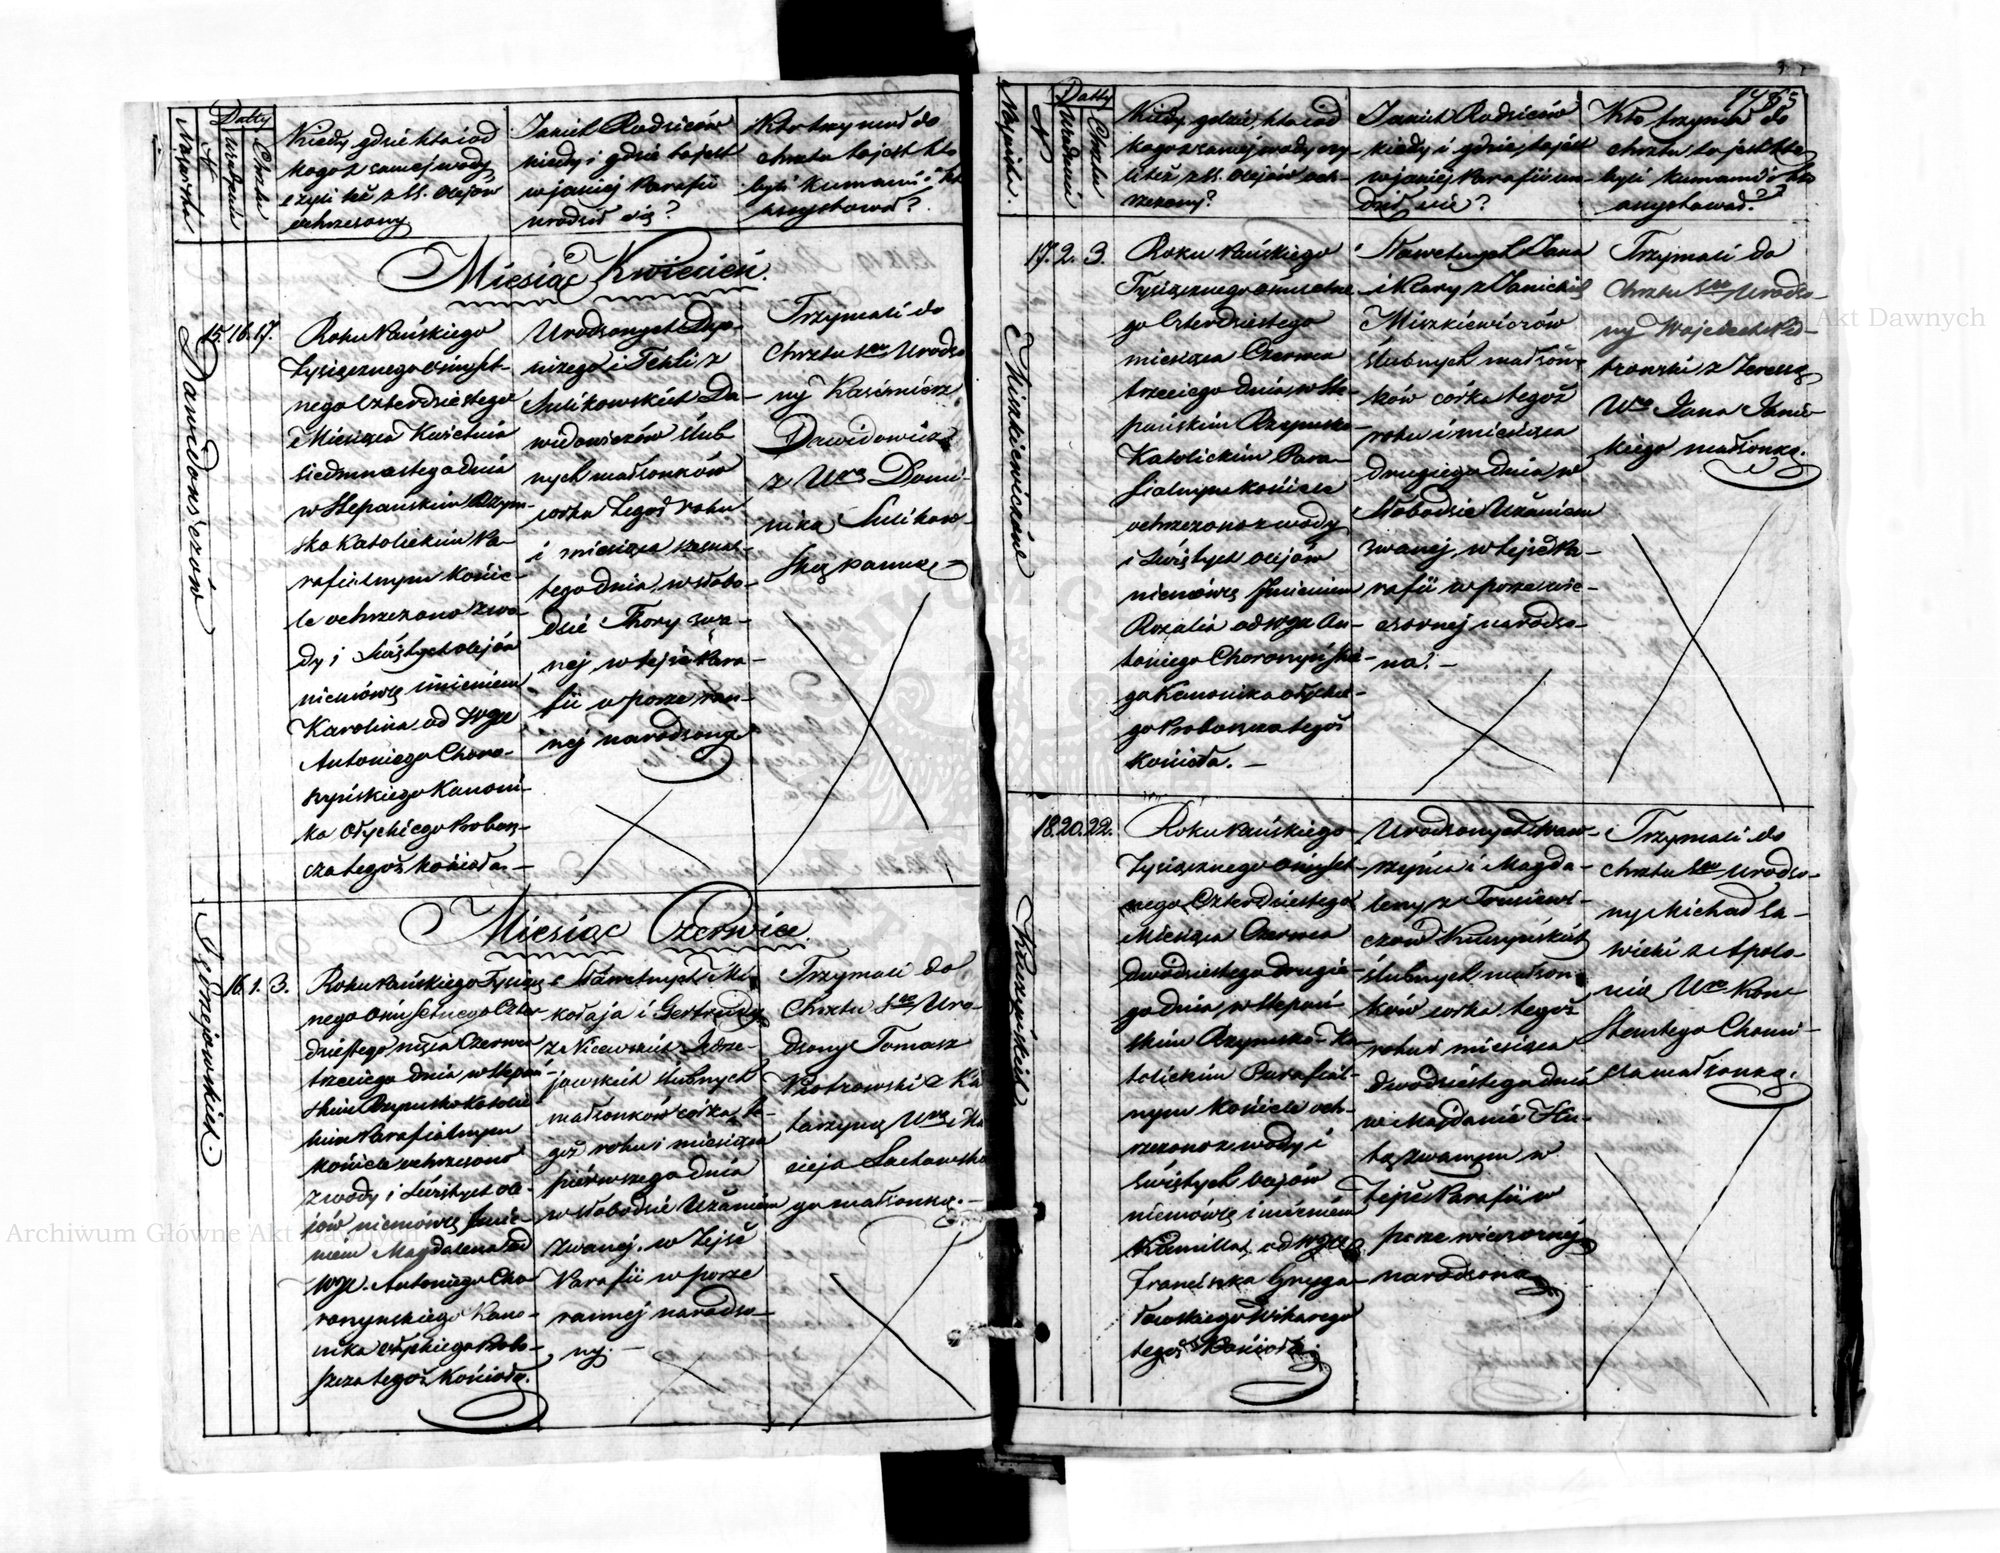 Datty
Nazwiska
N
Urodzenia
Chrztu
Kiedy, gdzie, kto i od
kogo z samej wody
czyli też z ss. Olejów
ochrzczony
Jakich Rodziców
kiedy i gdzie to jest
w jakiej Parafii
urodził się?
Kto trzymał do
chrztu to jest kto
byli kumami i kto
assystował?
Miesiąc Kwiecień.
15. 16. 17.
Dawidowiczów
Roku Pańskiego
tysiącznego ośmset-
nego czterdziestego
Miesiąca Kwietnia
siedmnastego dnia
w Stepańskim Rzym-
sko Katolickim Pa-
rafialnym Kościе-
le ochrzczono z wo-
dy i Świętych olejów
niemówlę imieniem
Karolina od Wgo
Antoniego Choro-
szyńskiego Kanoni-
ka Ołyckiego Probosz-
cza tegoż Kościoła. —
Urodzonych
i Tekli z
Sulikowskich Da-
widowiczów ślub
nych małżonków
córka tegoż roku
i miesiąca szesnas-
tego dnia, w słobo-
dzie Thory zwa-
nej w tejże Para-
fii w porze ran-
nej narodzona
Trzymali do
Chrztu Sgo Urodzo
ny Kazimierz
Dawidowicz
z Uro Domi-
nika Sulikow-
ską panną —
Miesiąc Czerwiec.
16. 1. 3.
Jędrzejowskich.
Roku Pańskiego Tysiącz
nego Ośmsetnego Czter
dziestego msca Czerwca
trzeciego dnia, w Stepań-
skim Rzymsko Katolic
kim Parafialnym
Kościele ochrzczono
z wody i Świętych ole
jów niemówlę Imie-
niem Magdalena od
Wgo. Antoniego Cho
ronynskiego Kano-
nika Ołyckiego Probo-
szcza tegoż Kościoła.
Sławetnych Mi
kołaja i Gertrudy
z Nicewskich Jędrze-
jowskich ślubnych
małżonków córka te-
goż roku i miesiąca
pierwszego dnia
w słobodzie Użaniem
zwanej, w tejże
Parafii w porze
rannej narodzo-
ny. —
Trzymali do
Chrztu Sgo Uro-
dzony Tomasz
Piotrowski z Ka
tarzyną Uro Ma
cieja Sachowskie
go małżonką. —
1485
Datty
Nazwiska.
N
Urodzenia
Chrztu
Kiedy, gdzie, kto i od
kogo z samej wody czy-
li też z ss. olejów och-
rzczony?
Jakich Rodziców
kiedy i gdzie, to jest
w jakiej Parafii uro-
dził się?
Kto trzymał do
chrztu to jest kto
byli kumami i kto
assystował?
17. 2. 3.
Miszkiewiczów
Roku Pańskiego
Tysiącznego ośmsetne
go Czterdziestego
miesiąca Czerwca
trzeciego dnia, w Ste-
pańskim Rzymsko-
Katolickim Para-
fialnym kościele
ochrzczono z wody
i Świętych olejów
niemówlę Imieniem
Rozalia od Wgo An-
toniego Choronyńskie-
go Kanonika Ołyckie-
go Proboszcza tegoż
Kościoła. —
Sławetnych Jana
i Klary z Janickich
Miszkiewiczów
ślubnych małżon-
ków córka tegoż
roku i miesiąca
drugiego dnia, w
Słobodzie Użaniem
zwanej, w tejże Pa-
rafii w porze wie-
czornej narodzo-
na. —
Trzymali do
Chrztu Sgo Urodzo-
ny Wojciech Pio-
trowski z Teressą
Uro Jana Jani-
kiego małżonką.
18. 20. 22.
Kruszyńskich.
Roku Pańskiego
tysiącznego ośmset-
nego Czterdziestego
Miesiąca Czerwca
dwudziestego drugie-
go dnia, w Stepań-
skim Rzymsko-Ka
tolickim Parafial-
nym Kościele och-
rzczono z wody i
świętych olejów
niemówlę imieniem
Kamilla, od Wgo
Franciszka Gryga-
Towskiego Wikarego
tegoż Kościoła.
Urodzonych Waw-
rzyńca i Magda-
leny z
Kruszyńskich
ślubnych małżon-
ków córka, tegoż
roku i miesiąca
dwudziestego dnia
w Majdanie Hu-
tą zwanym w
tejże Parafii w
porze wieczornej
narodzona
Trzymali do
chrztu Sgo Urodzo-
ny Michał Sa-
wicki z Apolo-
nią Uro Kon-
stantego
małżonką.
Archiwum Główne Akt Dawnych
Archiwum Główne Akt Dawnych